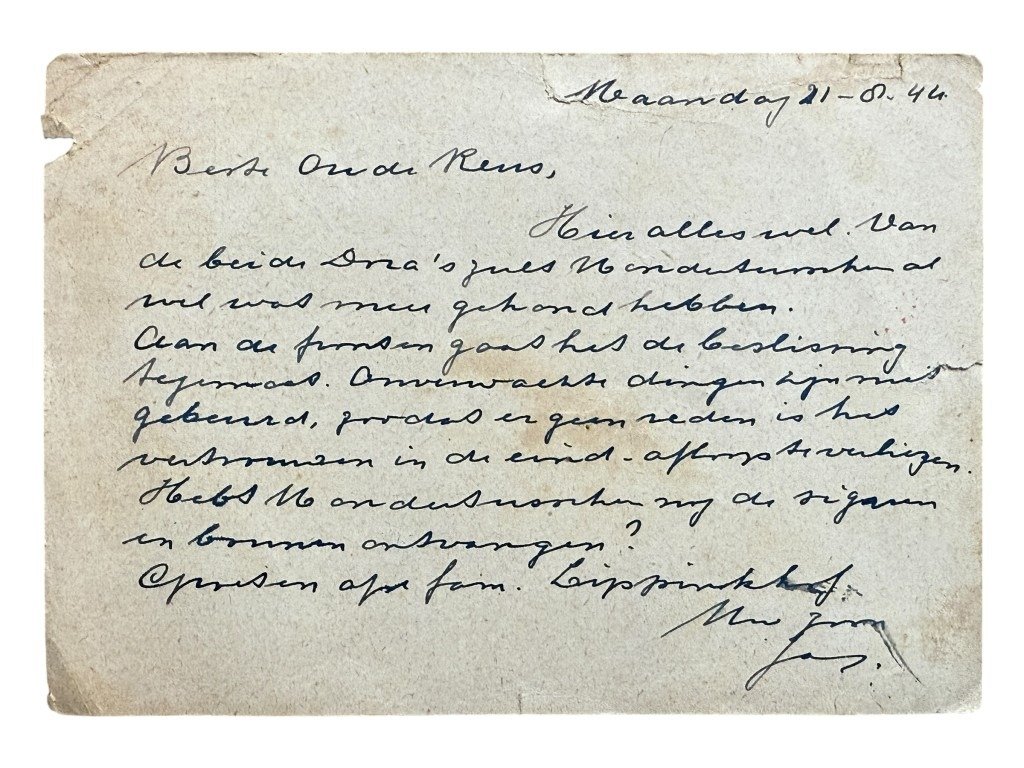 Maandag 21-8-44.
Beste Ouders,
Hier alles wel. Van
de beide Dora's zult U ondertusschen al
wel wat mee gehoord hebben.
Aan de fronten gaat het de beslissing
tegemoet. Onverwachte dingen zijn niet
gebeurd, zoodat er geen reden is het
vertrouwen in de eind-afloop te verliezen.
Hebt U ondertusschen nog de sigaren
en bonnen ontvangen?
Groeten a/d fam. Lippinkhof.
Uw zoon
Jas.